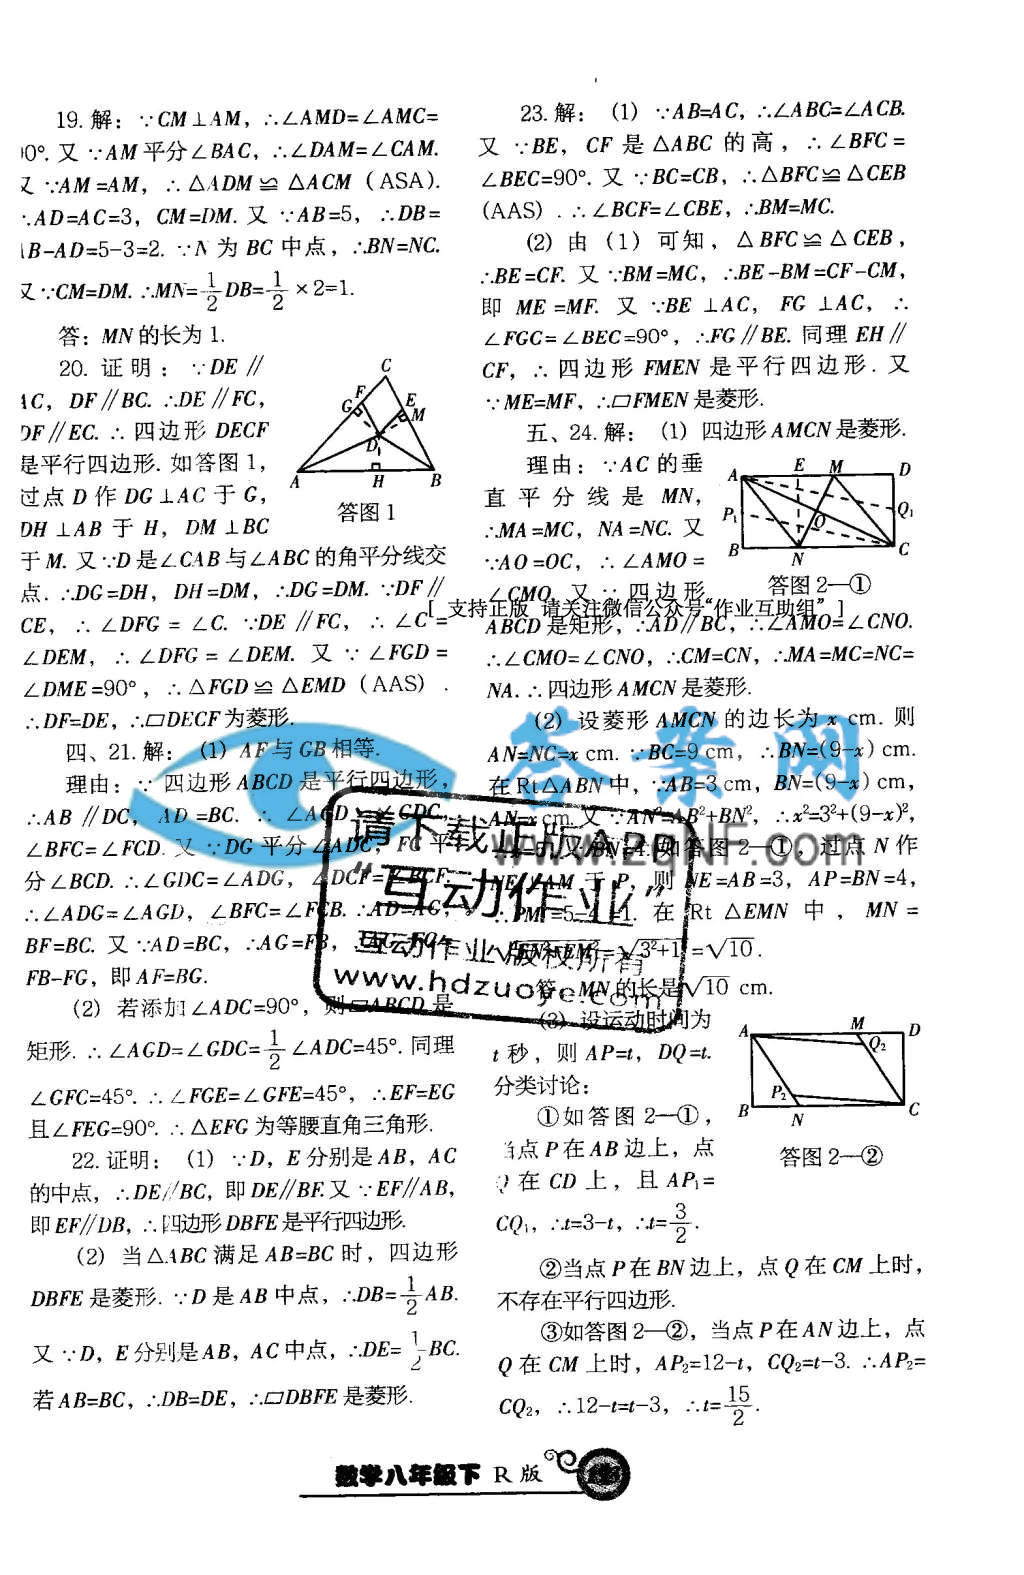 19. 解：∵CM⊥AM，∴∠AMD=∠AMC=
0°. 又∵AM平分∠BAC，∴∠DAM=∠CAM.
又∵AM=AM，∴△ADM≌△ACM（ASA）.
∴AD=AC=3，CM=DM. 又∵AB=5，∴DB=
B-AD=5-3=2. ∵N为BC中点，∴BN=NC.
又∵CM=DM. ∴MN=1/2 DB=1/2×2=1.
答：MN的长为1.
20. 证明：∵DE∥
C，DF∥BC. ∴DE∥FC，
DF∥EC. ∴四边形DECF
是平行四边形. 如答图1，
过点D作DG⊥AC于G，
DH⊥AB于H，DM⊥BC
C
F
G
E
M
D
A
H
B
答图1
于M. 又∵D是∠CAB与∠ABC的角平分线交
点. ∴DG=DH，DH=DM，∴DG=DM. ∵DF∥
CE，∴∠DFG=∠C. ∵DE∥FC，∴∠C=
∠DEM，∴∠DFG=∠DEM. 又∵∠FGD=
∠DME=90°，∴△FGD≌△EMD（AAS）.
∴DF=DE，∴▱DECF为菱形.
四、21. 解：（1）AF与GB相等.
理由：∵四边形ABCD是平行四边形，
∴AB∥DC，AD=BC. ∴∠AGD=∠GDC，
∠BFC=∠FCD. 又∵DG平分∠ADC，FC平
分∠BCD. ∴∠GDC=∠ADG，∠DCF=∠BCF.
∴∠ADG=∠AGD，∠BFC=∠FCB. ∴AD=AG，
BF=BC. 又∵AD=BC，∴AG=FB，
FB-FG，即AF=BG.
（2）若添加∠ADC=90°，则▱ABCD是
矩形. ∴∠AGD=∠GDC=1/2∠ADC=45°. 同理
∠GFC=45°. ∴∠FGE=∠GFE=45°，∴EF=EG
且∠FEG=90°. ∴△EFG为等腰直角三角形.
22. 证明：（1）∵D，E分别是AB，AC
的中点，∴DE∥BC，即DE∥BF. 又∵EF∥AB，
即EF∥DB，∴四边形DBFE是平行四边形.
（2）当△ABC满足AB=BC时，四边形
DBFE是菱形. ∵D是AB中点，∴DB=1/2 AB.
又∵D，E分别是AB，AC中点，∴DE=1/2 BC.
若AB=BC，∴DB=DE，∴▱DBFE是菱形.
23. 解：（1）∵AB=AC，∴∠ABC=∠ACB.
又∵BE，CF是△ABC的高，∴∠BFC=
∠BEC=90°. 又∵BC=CB，∴△BFC≌△CEB
（AAS）. ∴∠BCF=∠CBE，∴BM=MC.
（2）由（1）可知，△BFC≌△CEB，
∴BE=CF. 又∵BM=MC，∴BE-BM=CF-CM，
即ME=MF. 又∵BE⊥AC，FG⊥AC，∴
∠FGC=∠BEC=90°，∴FG∥BE. 同理EH∥
CF，∴四边形FMEN是平行四边形. 又
∵ME=MF，∴▱FMEN是菱形.
五、24. 解：（1）四边形AMCN是菱形.
理由：∵AC的垂
直平分线是MN，
∴MA=MC，NA=NC. 又
∵AO=OC，∴∠AMO=
∠CMO. 又∵四边形
A
E
M
D
P1
O
Q1
B
N
C
答图2—①
[ 支持正版 请关注微信公众号“作业互助组” ]
ABCD是矩形，∴AD∥BC，∴∠AMO=∠CNO.
∴∠CMO=∠CNO，∴CM=CN，∴MA=MC=NC=
NA. ∴四边形AMCN是菱形.
（2）设菱形AMCN的边长为x cm. 则
AN=NC=x cm. ∵BC=9 cm，∴BN=(9-x) cm.
在Rt△ABN中，∵AB=3 cm，BN=(9-x) cm，
AN=x cm. 又∵AN²=AB²+BN²，∴x²=3²+(9-x)²，
如答图2—①，过点N作
则NE=AB=3，AP=BN=4，
1. 在Rt△EMN中，MN=
√(EN²+EM²)=√(3²+1²)=√10.
答：MN的长是√10 cm.
（3）设运动时间为
t秒，则AP=t，DQ=t.
分类讨论：
①如答图2—①，
当点P在AB边上，点
Q在CD上，且AP1=
CQ1，∴t=3-t，∴t=3/2.
A
M
D
Q2
P2
B
N
C
答图2—②
②当点P在BN边上，点Q在CM上时，
不存在平行四边形.
③如答图2—②，当点P在AN边上，点
Q在CM上时，AP2=12-t，CQ2=t-3. ∴AP2=
CQ2，∴12-t=t-3，∴t=15/2.
答案网
请下载正版APP
“互动作业”
互动作业 版权所有
www.hdzuoye.com
数学八年级下 R版